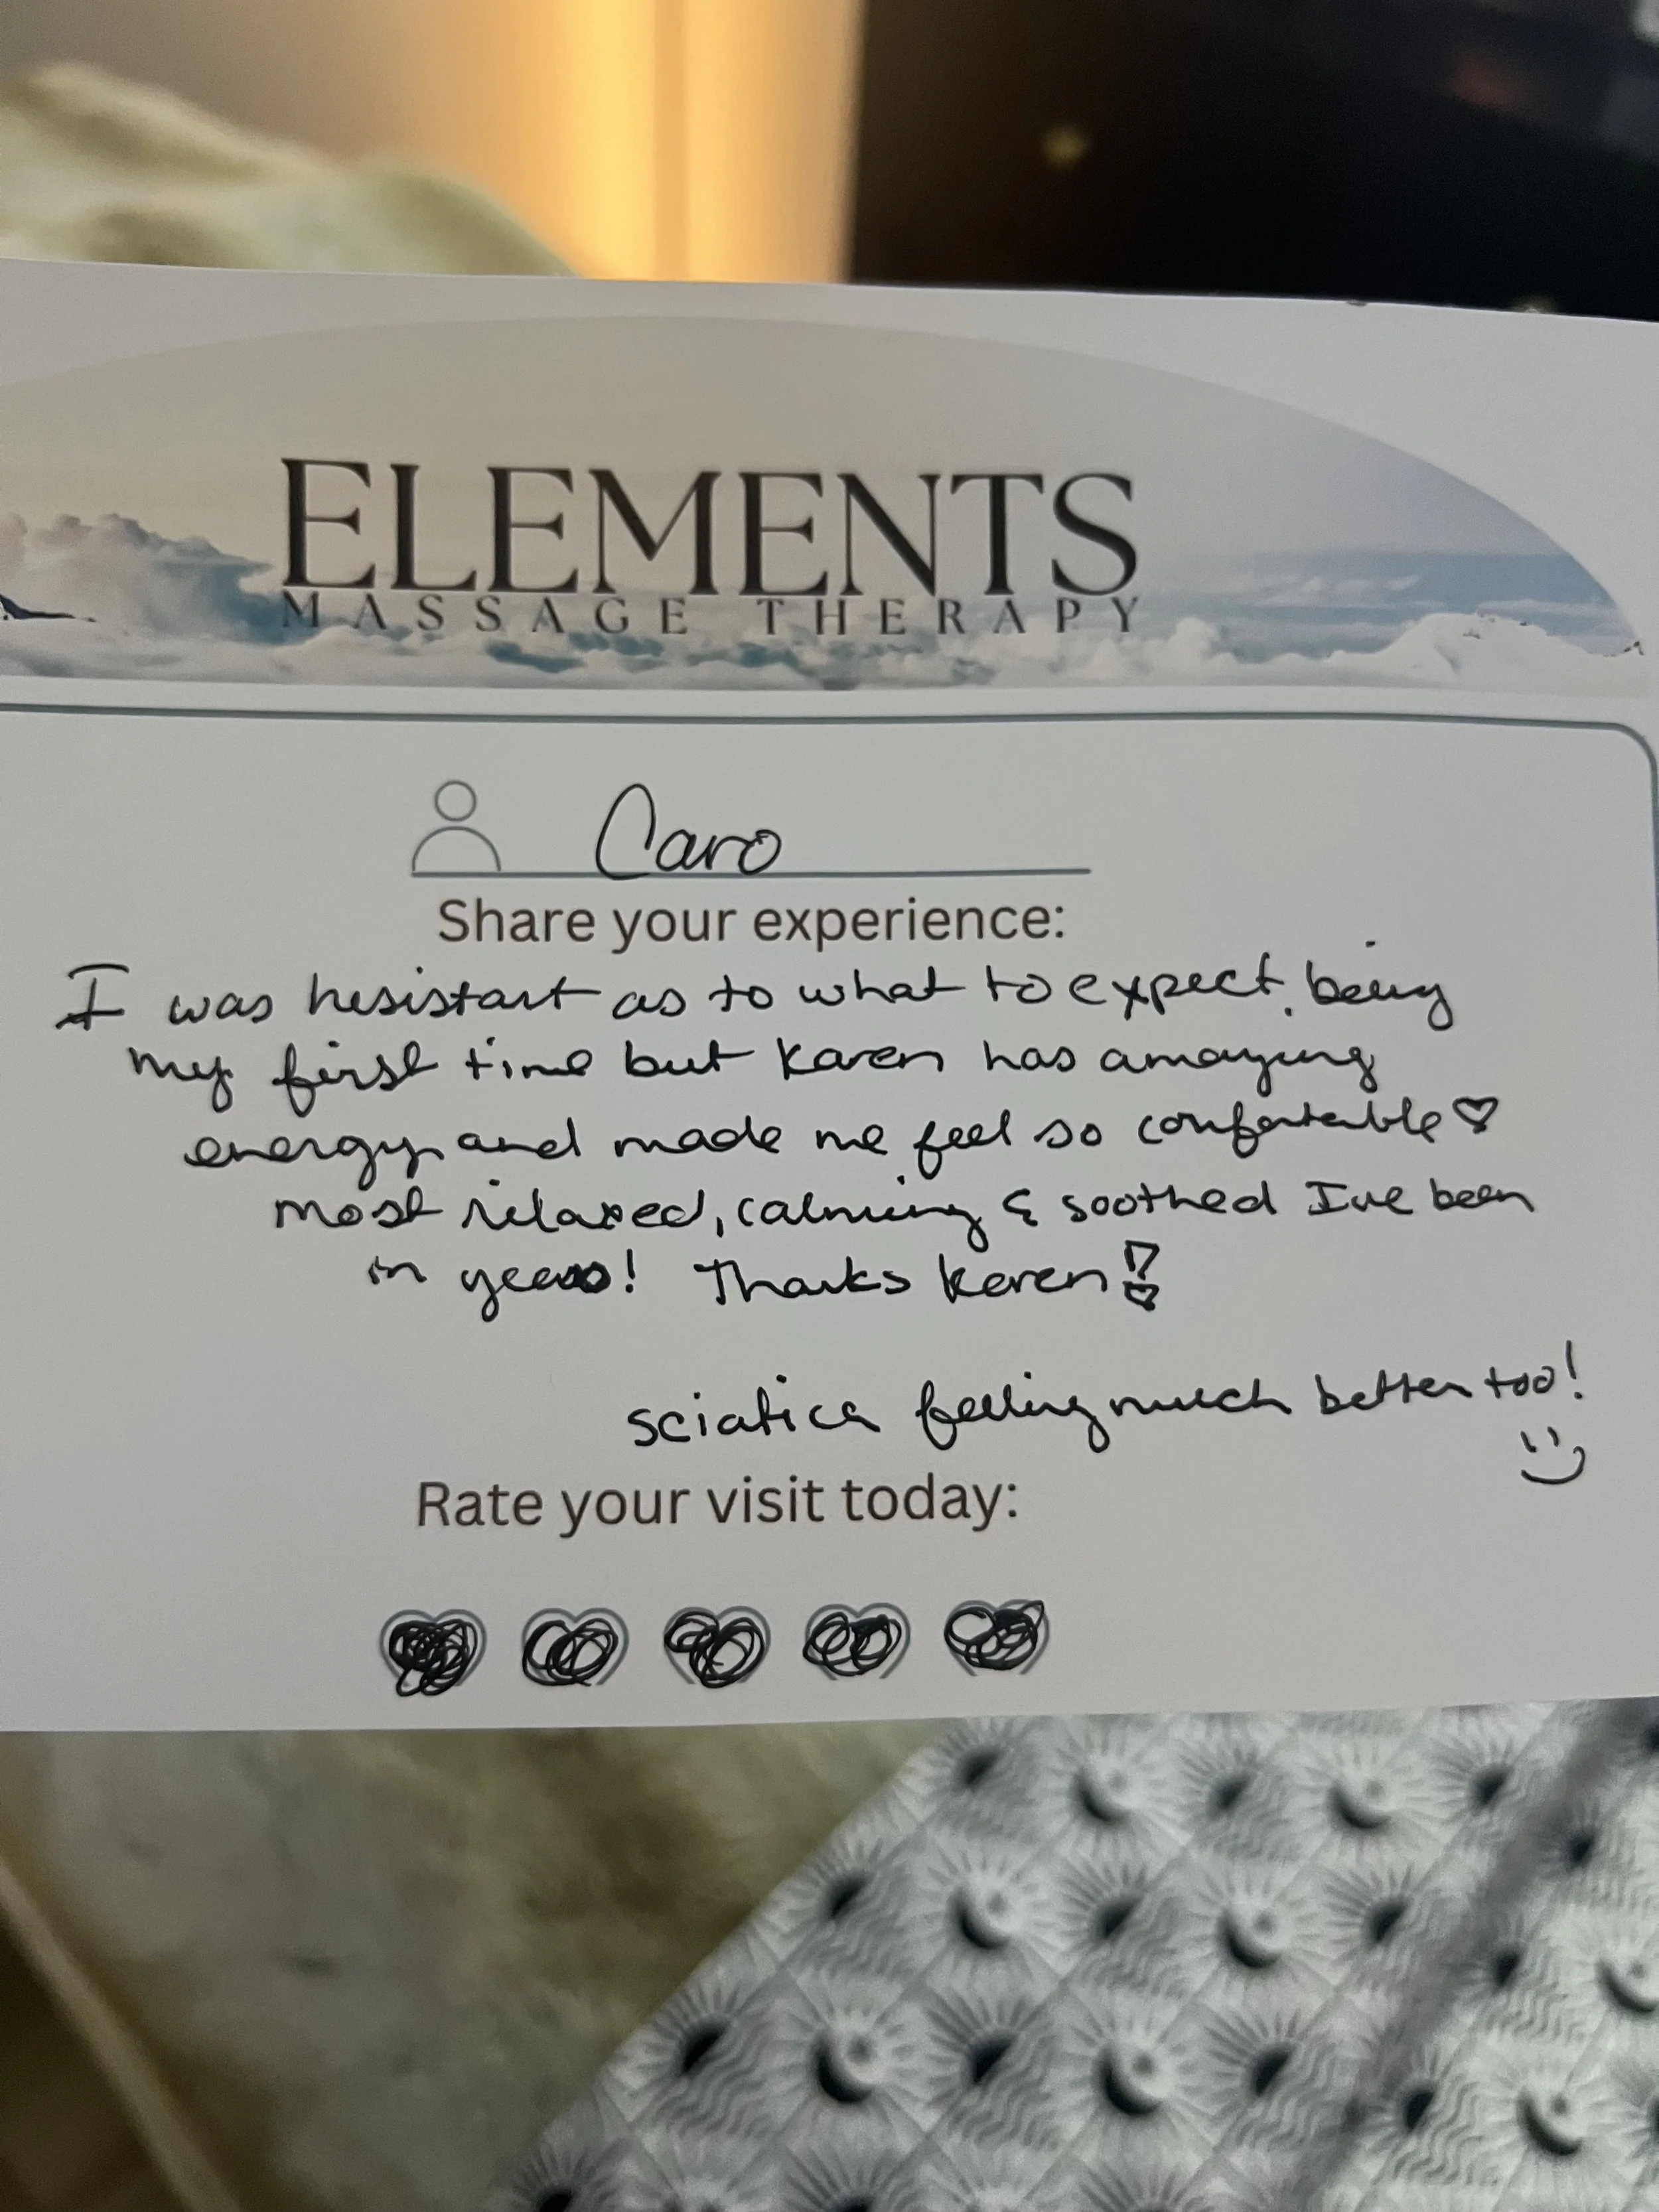 ELEMENTS
MASSAGE THERAPY
Caro
Share your experience:
I was hesistant as to what to expect, being
my first time but Karen has amazing
energy and made me feel so comfortable ♡
most relaxed, calming & soothed I've been
in years! Thanks Karen!
sciatica feeling much better too!
Rate your visit today: